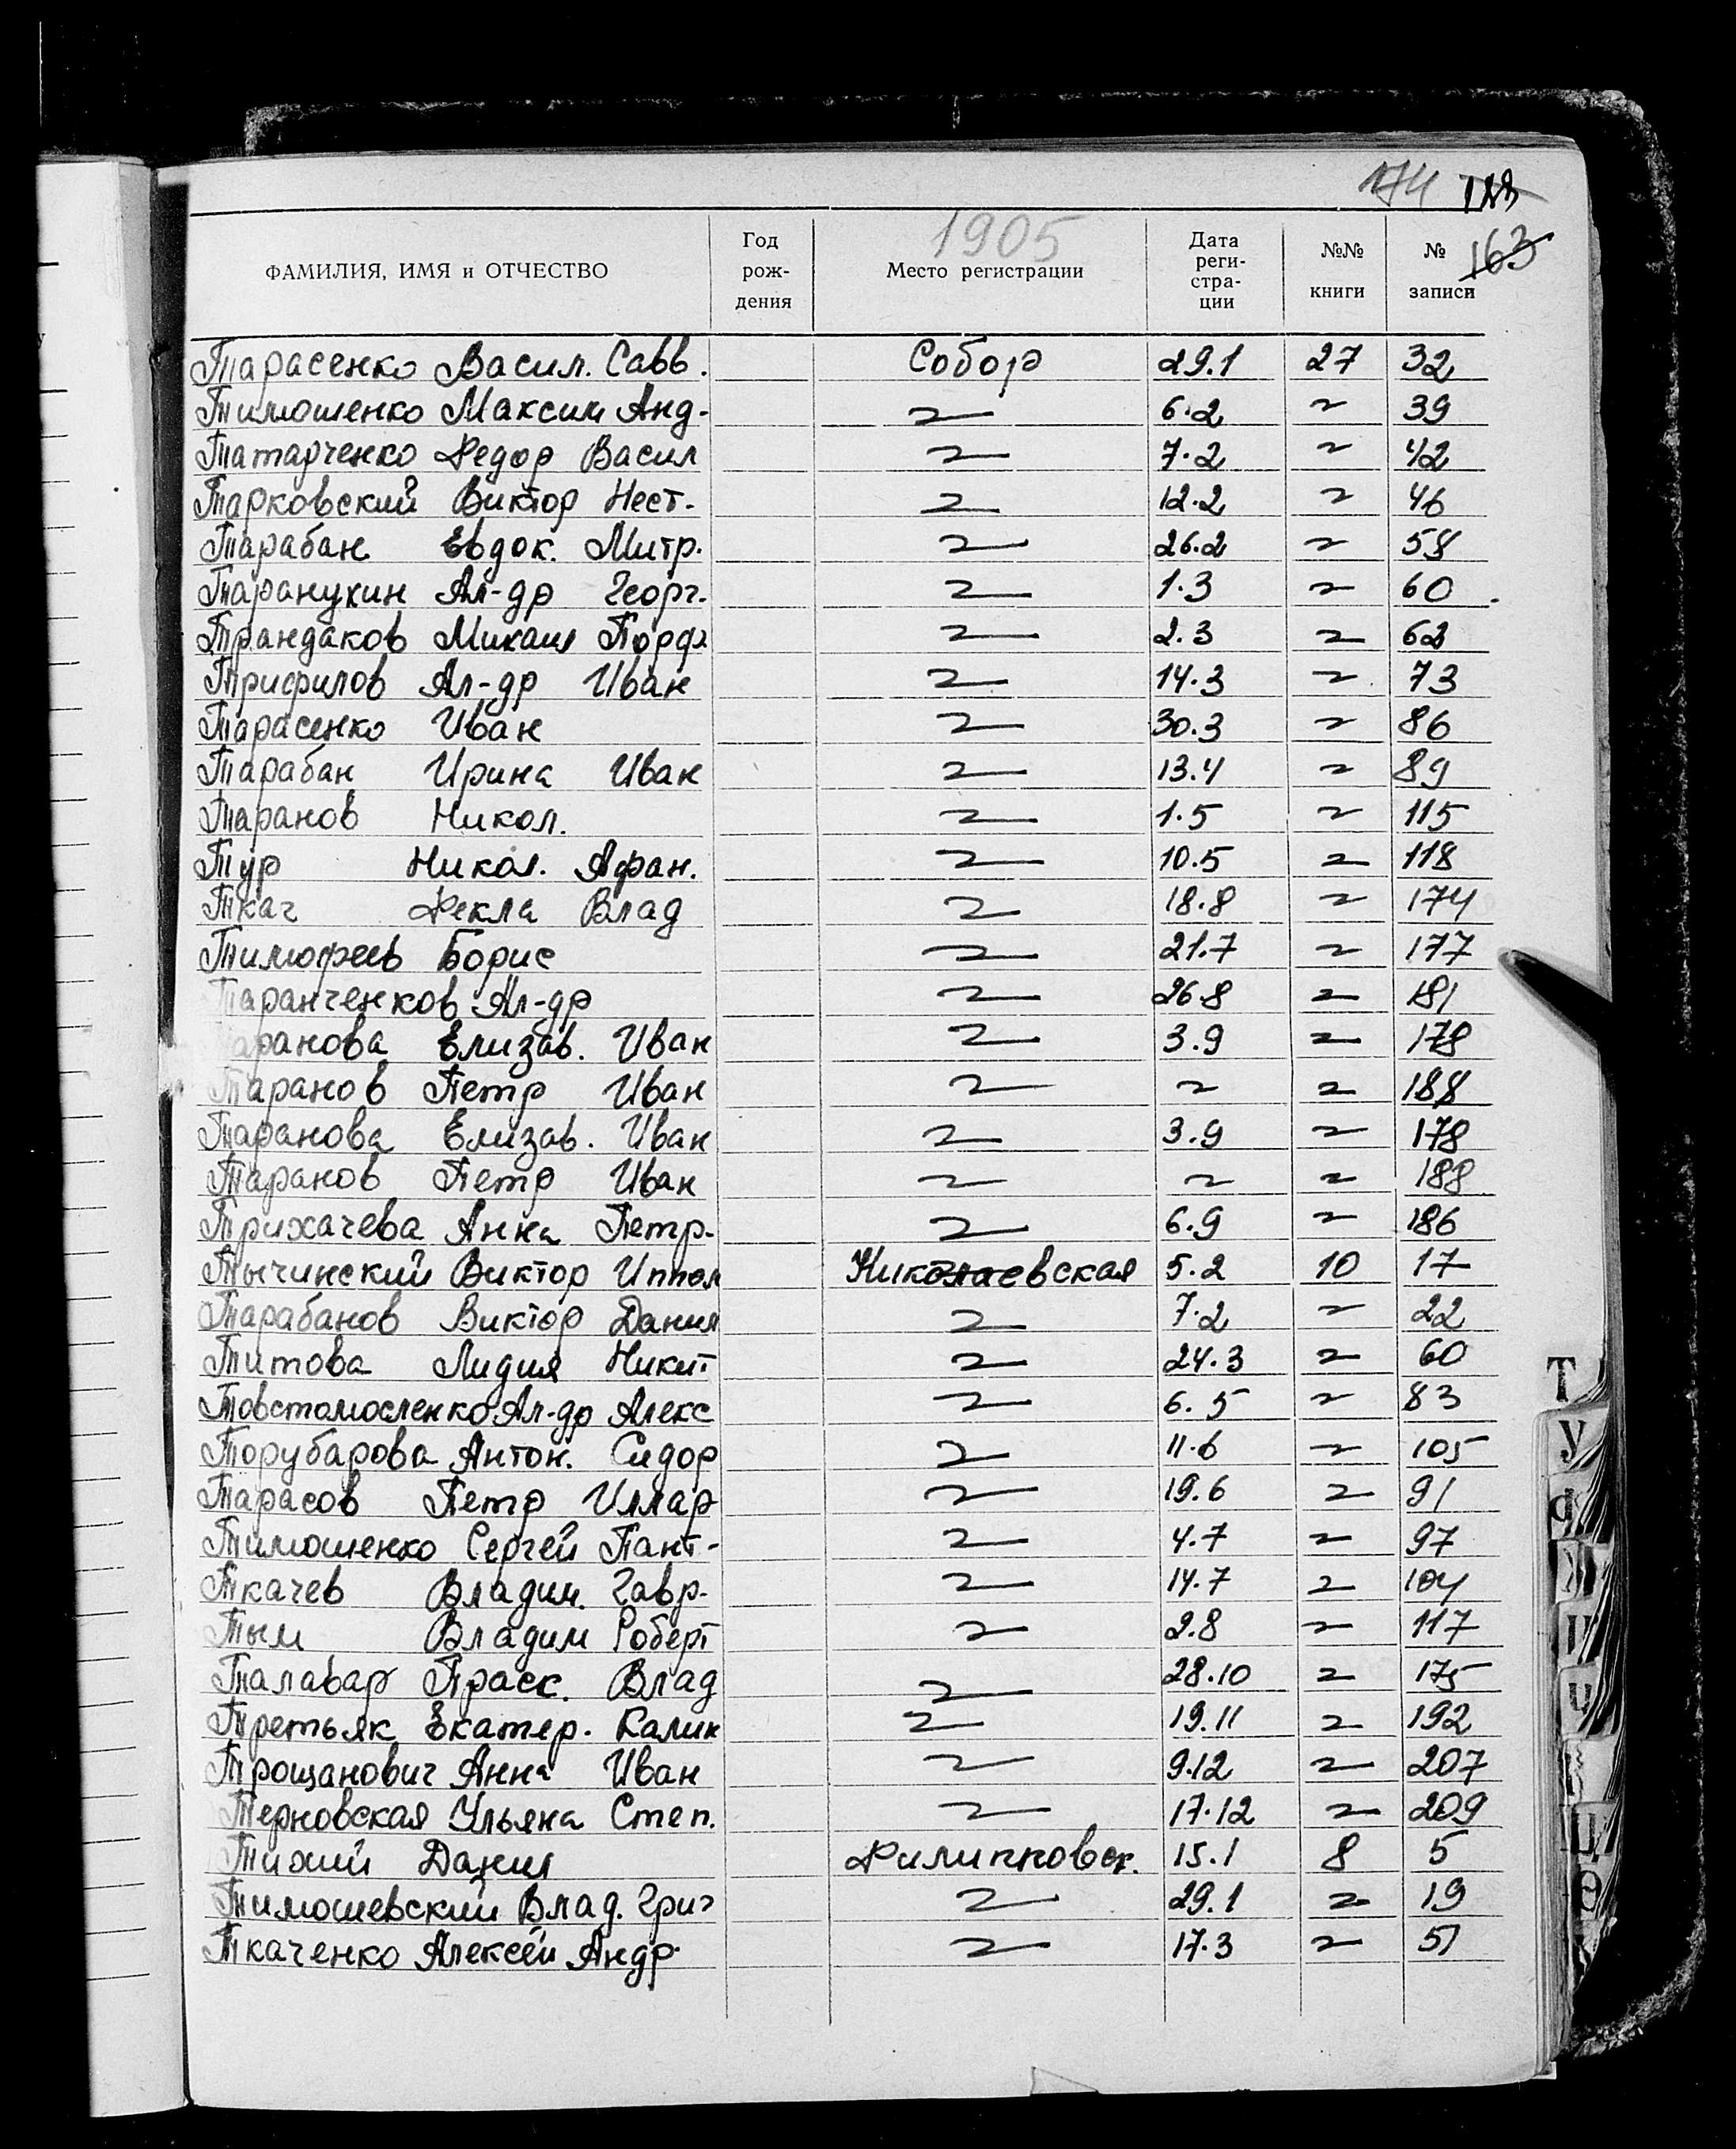 174 188
1905
163
ФАМИЛИЯ, ИМЯ и ОТЧЕСТВО Год рож- дения Место регистрации Дата реги- стра- ции №№ книги № записи
Тарасенко Васил. Савв. Собор 29.1 27 32
Тимошенко Максим Анд- 〃 6.2 〃 39
Татарченко Федор Васил 〃 7.2 〃 42
Тарковский Виктор Нест. 〃 12.2 〃 46
Тарабан Евдок. Митр. 〃 26.2 〃 58
Таранукин Ал-др Георг. 〃 1.3 〃 60
Трандаков Михаил Порф 〃 2.3 〃 62
Трифилов Ал-др Иван 〃 14.3 〃 73
Тарасенко Иван 〃 30.3 〃 86
Тарабан Ирина Иван 〃 13.4 〃 89
Таранов Никол. 〃 1.5 〃 115
Тур Никол. Афан. 〃 10.5 〃 118
Ткач Фекла Влад 〃 18.8 〃 174
Тимофеев Борис 〃 21.7 〃 177
Таранченков Ал-др 〃 26.8 〃 181
Таранова Елизав. Иван 〃 3.9 〃 178
Таранов Петр Иван 〃 〃 〃 188
Таранова Елизав. Иван 〃 3.9 〃 178
Таранов Петр Иван 〃 〃 〃 188
Трихачева Анна Петр. 〃 6.9 〃 186
Тычинский Виктор Иппол Николаевская 5.2 10 17
Тарабанов Виктор Данил 〃 7.2 〃 22
Титова Лидия Никит 〃 24.3 〃 60
Товстомосленко Ал-др Алекс 〃 6.5 〃 83
Торубарова Антон. Сидор 〃 11.6 〃 105
Тарасов Петр Иллар 〃 19.6 〃 91
Тимошенко Сергей Пант- 〃 4.7 〃 97
Ткачев Владим. Гавр. 〃 14.7 〃 104
Тым Владим Роберт 〃 2.8 〃 117
Талавар Праск. Влад 〃 28.10 〃 175
Третьяк Екатер. Калин 〃 19.11 〃 192
Трощанович Анна Иван 〃 9.12 〃 207
Терновская Ульяна Степ. 〃 17.12 〃 209
Тихий Данил Филипповск. 15.1 8 5
Тимошевский Влад. Григ 〃 29.1 〃 19
Ткаченко Алексей Андр. 〃 17.3 〃 51
Т
У
Ф